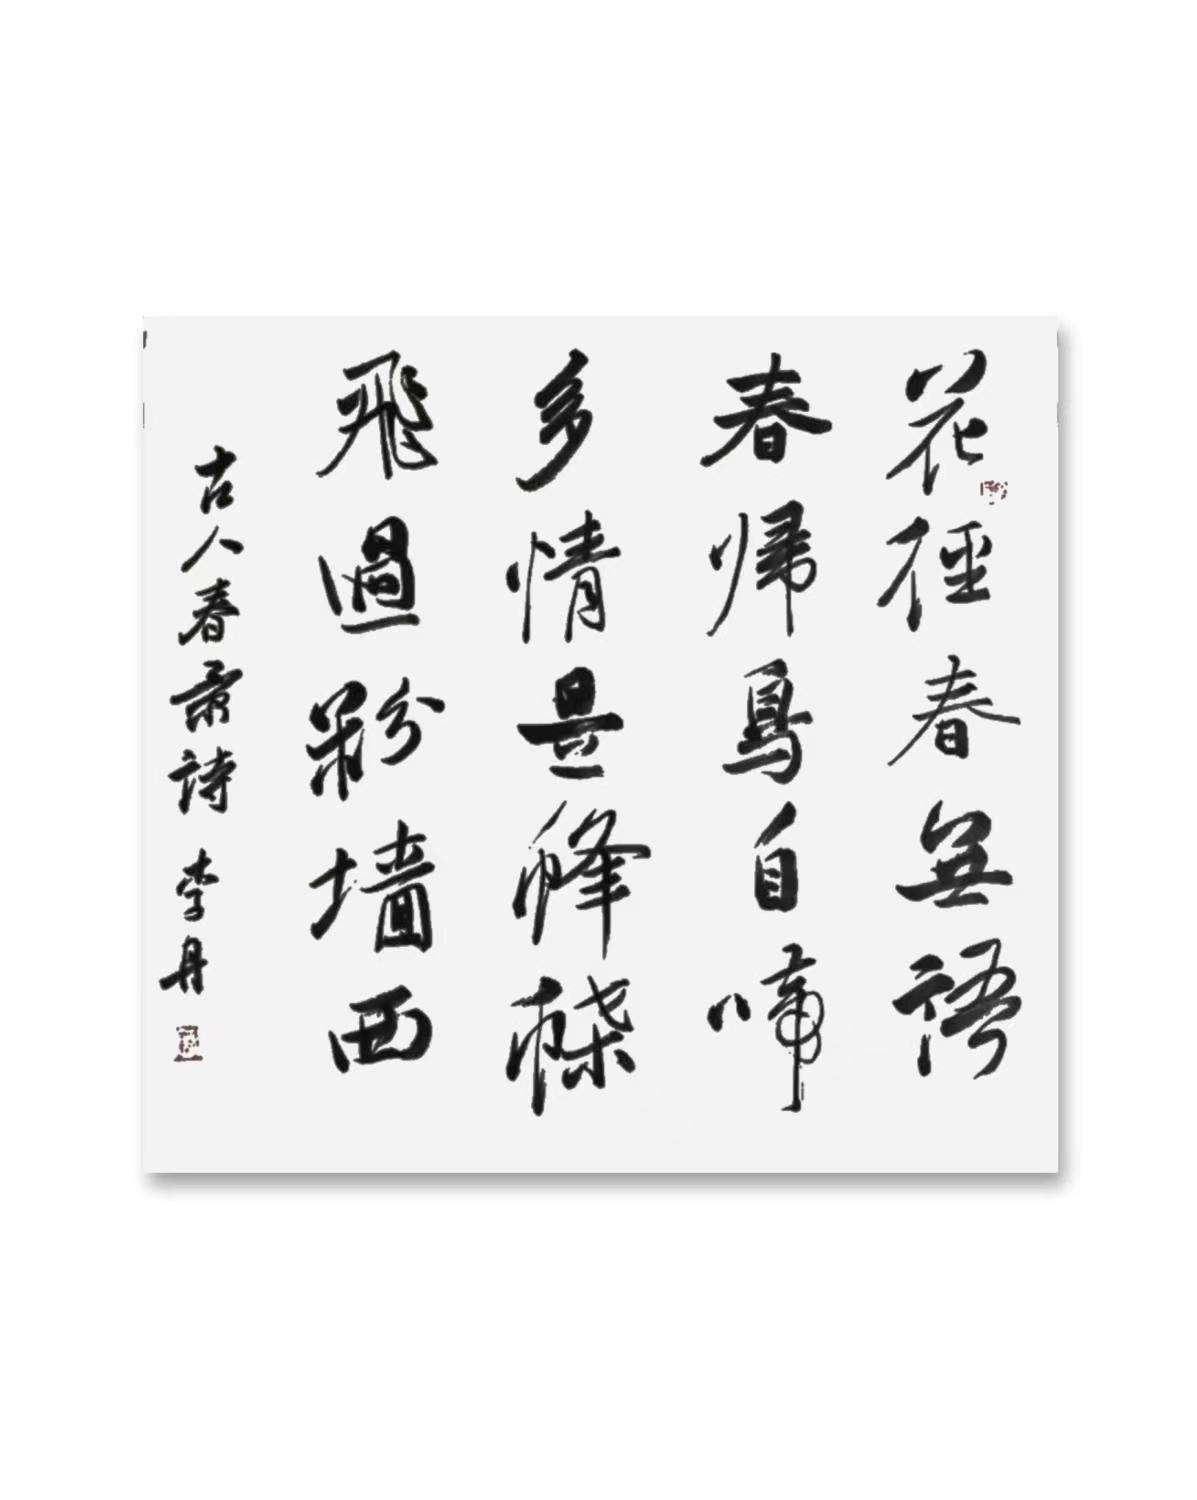 花徑春無語
春帰鳥自啼
多情是蜂蝶
飛過粉墙西
古人春景詩 李丹